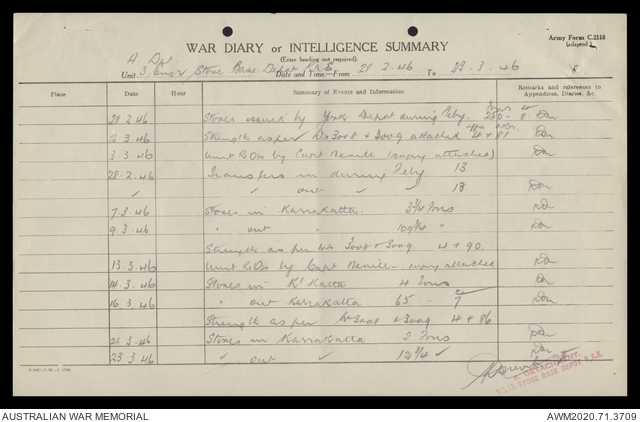 Army Form C.2118
(adapted)
WAR DIARY or INTELLIGENCE SUMMARY
(Erase heading not required).
A Det.
Unit 3 Engr Store Base Depot RAE Date and Time—From 28.2.46 To 23.3.46
Place Date Hour Summary of Events and Information Remarks and references to Appendices, Diaries, &c.
Tons cw
28.2.46 Stores issued by Yorks Depot during Feby. 230 - 8. Don
Offrs ORs
2.3.46 Strength as per Ws 3008 & 3009 attached 4 + 81 Don
3.3.46 Unit ROs by Capt Nemile (copy attached) Don
28.2.46 Transfers in during Feby 13
" " out " " 18 Don
7.3.46 Stores in Karrakatta. 3¾ Tons Don
9.3.46 " out " 109¾ " Don
Strength as per Ws 3008 & 3009 4 + 90. Don
13.3.46 Unit ROs by Capt Nemile - copy attached Don
14.3.46 Stores in K'Katta 4 Tons Don
cw
16.3.46 " out Karrakatta 65 - 7 Don
Strength as per Ws 3008 & 3009 4 + 86
21.3.46 Stores in Karrakatta 2 Tons Don
23.3.46 " out " 12¾ " Don
A DETACHMENT.
STORE BASE DEPOT R.A.E.
AUSTRALIAN WAR MEMORIAL
AWM2020.71.3709